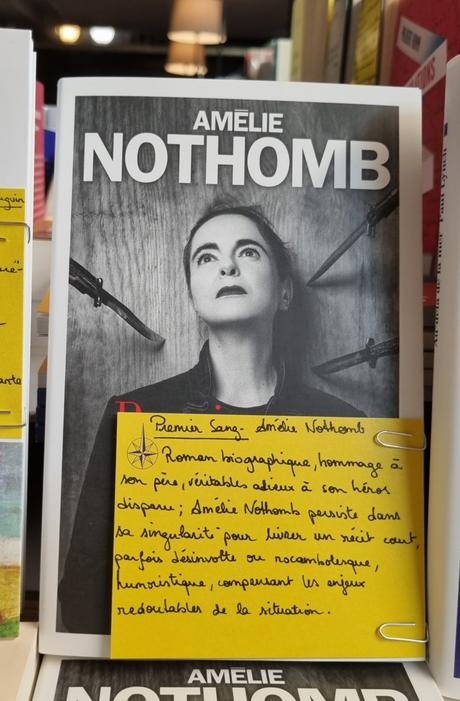 AMÉLIE
NOTHOMB
Premier Sang - Amélie Nothomb
Roman biographique, hommage à
son père, véritables adieux à son héros
disparu ; Amélie Nothomb persiste dans
sa singularité pour livrer un récit court,
parfois désinvolte ou rocambolesque,
humoristique, compensant les enjeux
redoutables de la situation.
AMÉLIE
NOTHOMB
Au-delà de la mer Paul Lynch